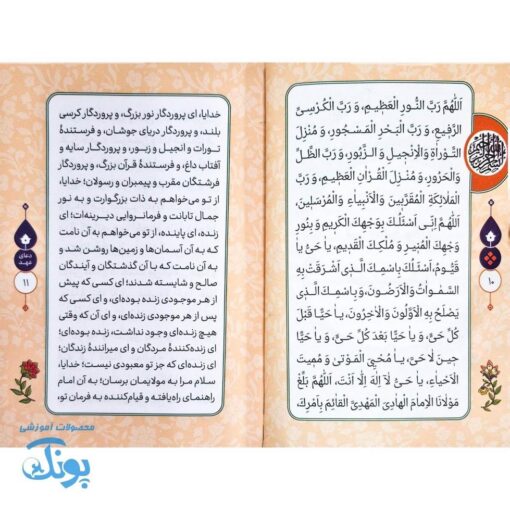 اَللّٰهُمَّ رَبَّ النُّورِ الْعَظیمِ، وَ رَبَّ الْکُرْسِیِّ
الرَّفیعِ، وَ رَبَّ الْبَحْرِ الْمَسْجُورِ، وَ مُنْزِلَ
التَّوْرٰاةِ وَ الْاِنْجیلِ وَ الزَّبُورِ، وَ رَبَّ الظِّلِّ
وَ الْحَرُورِ، وَ مُنْزِلَ الْقُرْاٰنِ الْعَظیمِ، وَ رَبَّ
الْمَلٰائِکَةِ الْمُقَرَّبینَ وَ الْاَنْبِیٰاءِ وَ الْمُرْسَلینَ،
اَللّٰهُمَّ اِنّی اَسْئَلُکَ بِوَجْهِکَ الْکَریمِ وَ بِنُورِ
وَجْهِکَ الْمُنیرِ وَ مُلْکِکَ الْقَدیمِ، یٰا حَیُّ یٰا
قَیُّومُ، اَسْئَلُکَ بِاسْمِکَ الَّذی اَشْرَقَتْ بِهِ
السَّمٰوٰاتُ وَ الْاَرَضُونَ، وَ بِاسْمِکَ الَّذی
یَصْلَحُ بِهِ الْاَوَّلُونَ وَ الْاٰخِرُونَ، یٰا حَیًّا قَبْلَ
کُلِّ حَیٍّ، وَ یٰا حَیًّا بَعْدَ کُلِّ حَیٍّ، وَ یٰا حَیًّا
حینَ لٰا حَیَّ، یٰا مُحْیِیَ الْمَوْتٰی وَ مُمیتَ
الْاَحْیٰاءِ، یٰا حَیُّ لٰا اِلٰهَ اِلّٰا اَنْتَ، اَللّٰهُمَّ بَلِّغْ
مَوْلٰانَا الْاِمٰامَ الْهٰادِیَ الْمَهْدِیَّ الْقٰائِمَ بِاَمْرِکَ،
۱۰
خدایا، ای پروردگار نور بزرگ، و پروردگار کرسی
بلند، و پروردگار دریای جوشان، و فرستندهٔ
تورات و انجیل و زبور، و پروردگار سایه و
آفتاب داغ، و فرستندهٔ قرآن بزرگ، و پروردگار
فرشتگان مقرب و پیمبران و رسولان؛ خدایا،
از تو می‌خواهم به ذات بزرگوارت و به نور
جمال تابانت و فرمانروایی دیرینه‌ات؛ ای
زنده، ای پاینده، از تو می‌خواهم به آن نامت
که به آن آسمان‌ها و زمین‌ها روشن شد و
به آن نامت که با آن گذشتگان و آیندگان
صالح و شایسته شدند؛ ای کسی که پیش
از هر موجودی زنده بوده‌ای، و ای کسی که
پس از هر موجودی زنده‌ای، و ای آن که وقتی
هیچ زنده‌ای وجود نداشت، زنده بوده‌ای؛
ای زنده‌کنندهٔ مردگان و ای میرانندهٔ زندگان؛
ای زنده‌ای که جز تو معبودی نیست؛ خدایا،
سلام مرا به مولایمان برسان؛ به آن امام
راهنمای راه‌یافته و قیام‌کننده به فرمان تو،
دعای
عهد
۱۱
محصولات آموزشی
پونک